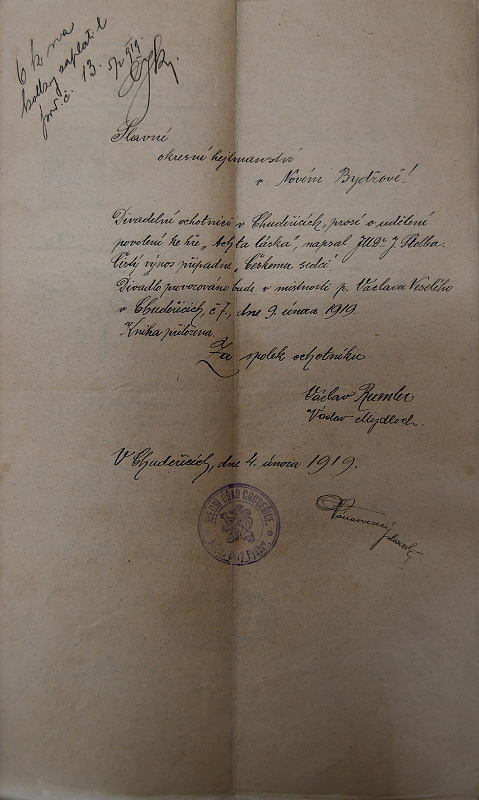 6 k na
kolky zaplatil
pod č. 13. 5/2 919.
Slavné
okresní hejtmanství
v Novém Bydžově!
Divadelní ochotníci v Chudeřicích, prosí o udělení
povolení ke hře „ láska", napsal JUDr J. Štolba.
Čistý výnos připadne „Českému srdci".
Divadlo provozováno bude v místnosti p. Václava Veselého
v Chudeřicích, č 7, dne 9. února 1919.
Kniha přiložena.
Za spolek ochotníků
Václav Rumler
Václav Mydloch.
V Chudeřicích, dne 4. února 1919.
OBECNÍ ÚŘAD CHUDEŘICE